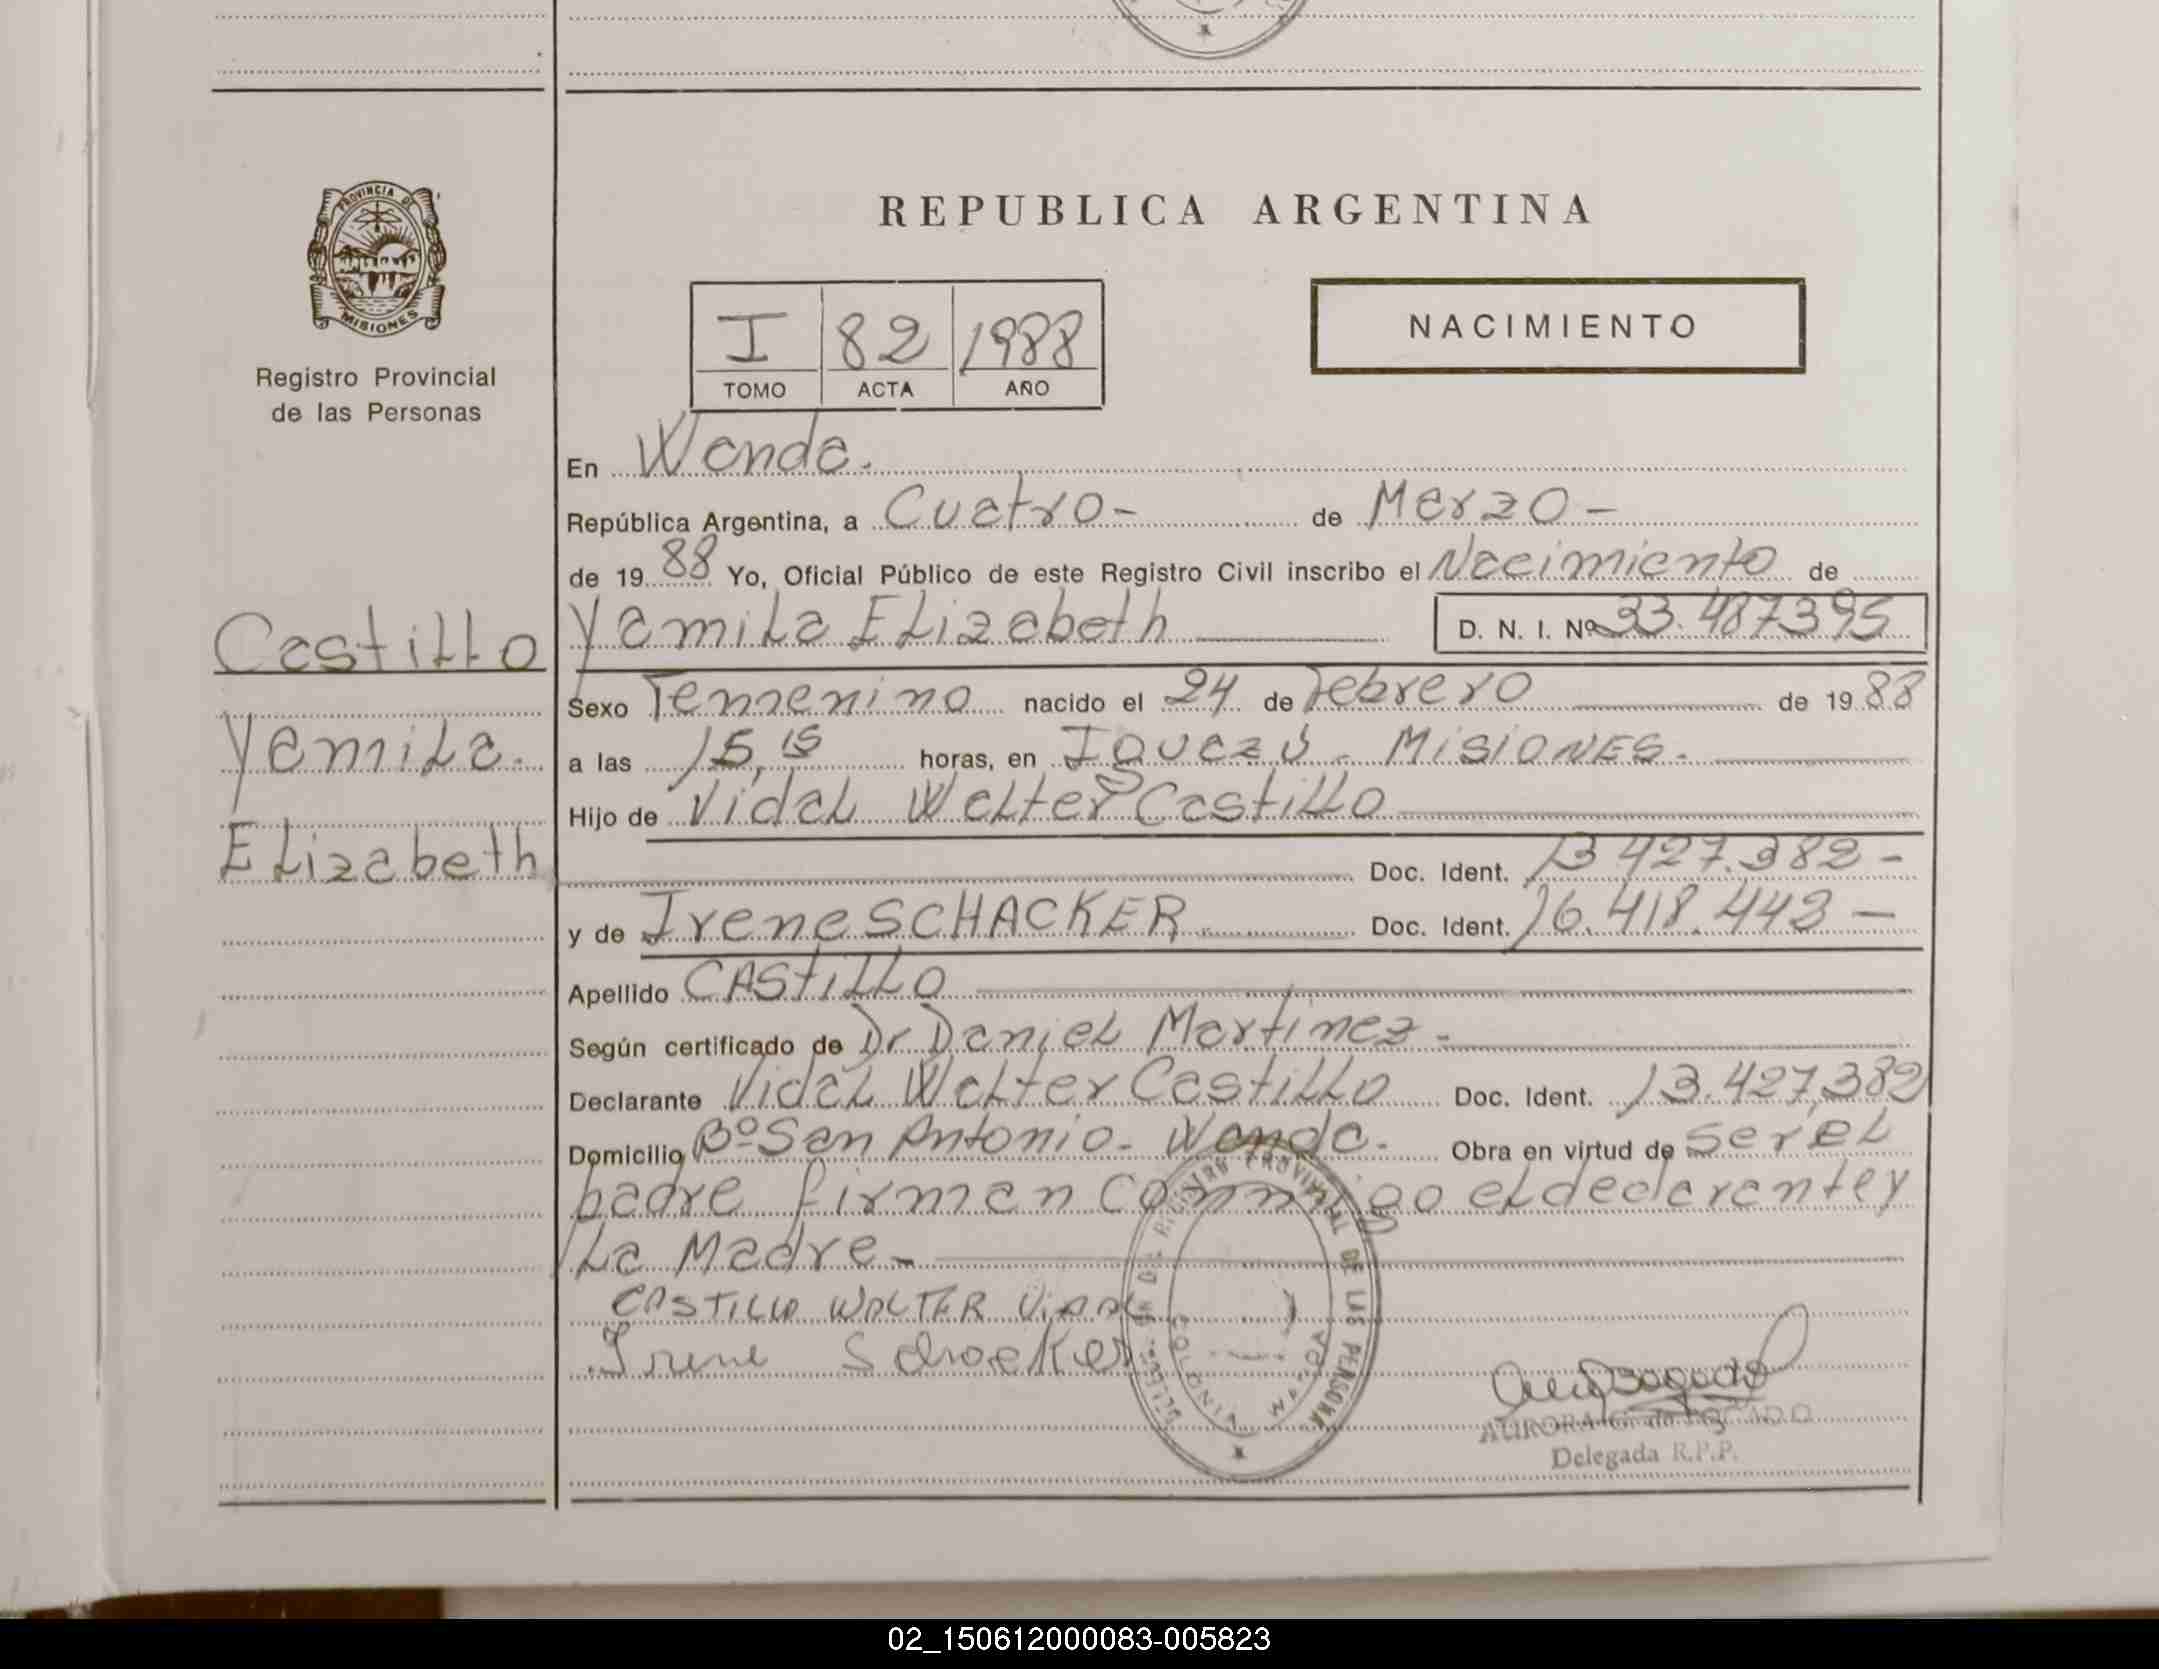 PROVINCIA DE
MISIONES
Registro Provincial
de las Personas
Castillo
Yamila.
Elizabeth
REPUBLICA ARGENTINA
I 82 1988
TOMO ACTA AÑO
NACIMIENTO
En Wanda.
República Argentina, a Cuatro- de Marzo-
de 19 88 Yo, Oficial Público de este Registro Civil inscribo el Nacimiento de
Yamila Elizabeth D. N. I. Nº 33.487395
Sexo Femenino nacido el 24 de Febrero de 19 88
a las 15,15 horas, en Iguazú - MISIONES.
Hijo de Vidal Walter Castillo
Doc. Ident. 13 427.382-
y de Irene SCHACKER Doc. Ident. 16.418.443-
Apellido CASTILLO
Según certificado de Dr Daniel Martinez-
Declarante Vidal Walter Castillo Doc. Ident. 13.427,382
Domicilio Bº San Antonio- Wanda. Obra en virtud de ser el
padre firman conmigo el declarante y
La Madre-
CASTILLO WALTER VIDAL
Irene Schacker
REGISTRO PROVINCIAL DE LAS PERSONAS
COLONIA WANDA
AURORA G. de BOGADO
Delegada R.P.P.
02_150612000083-005823